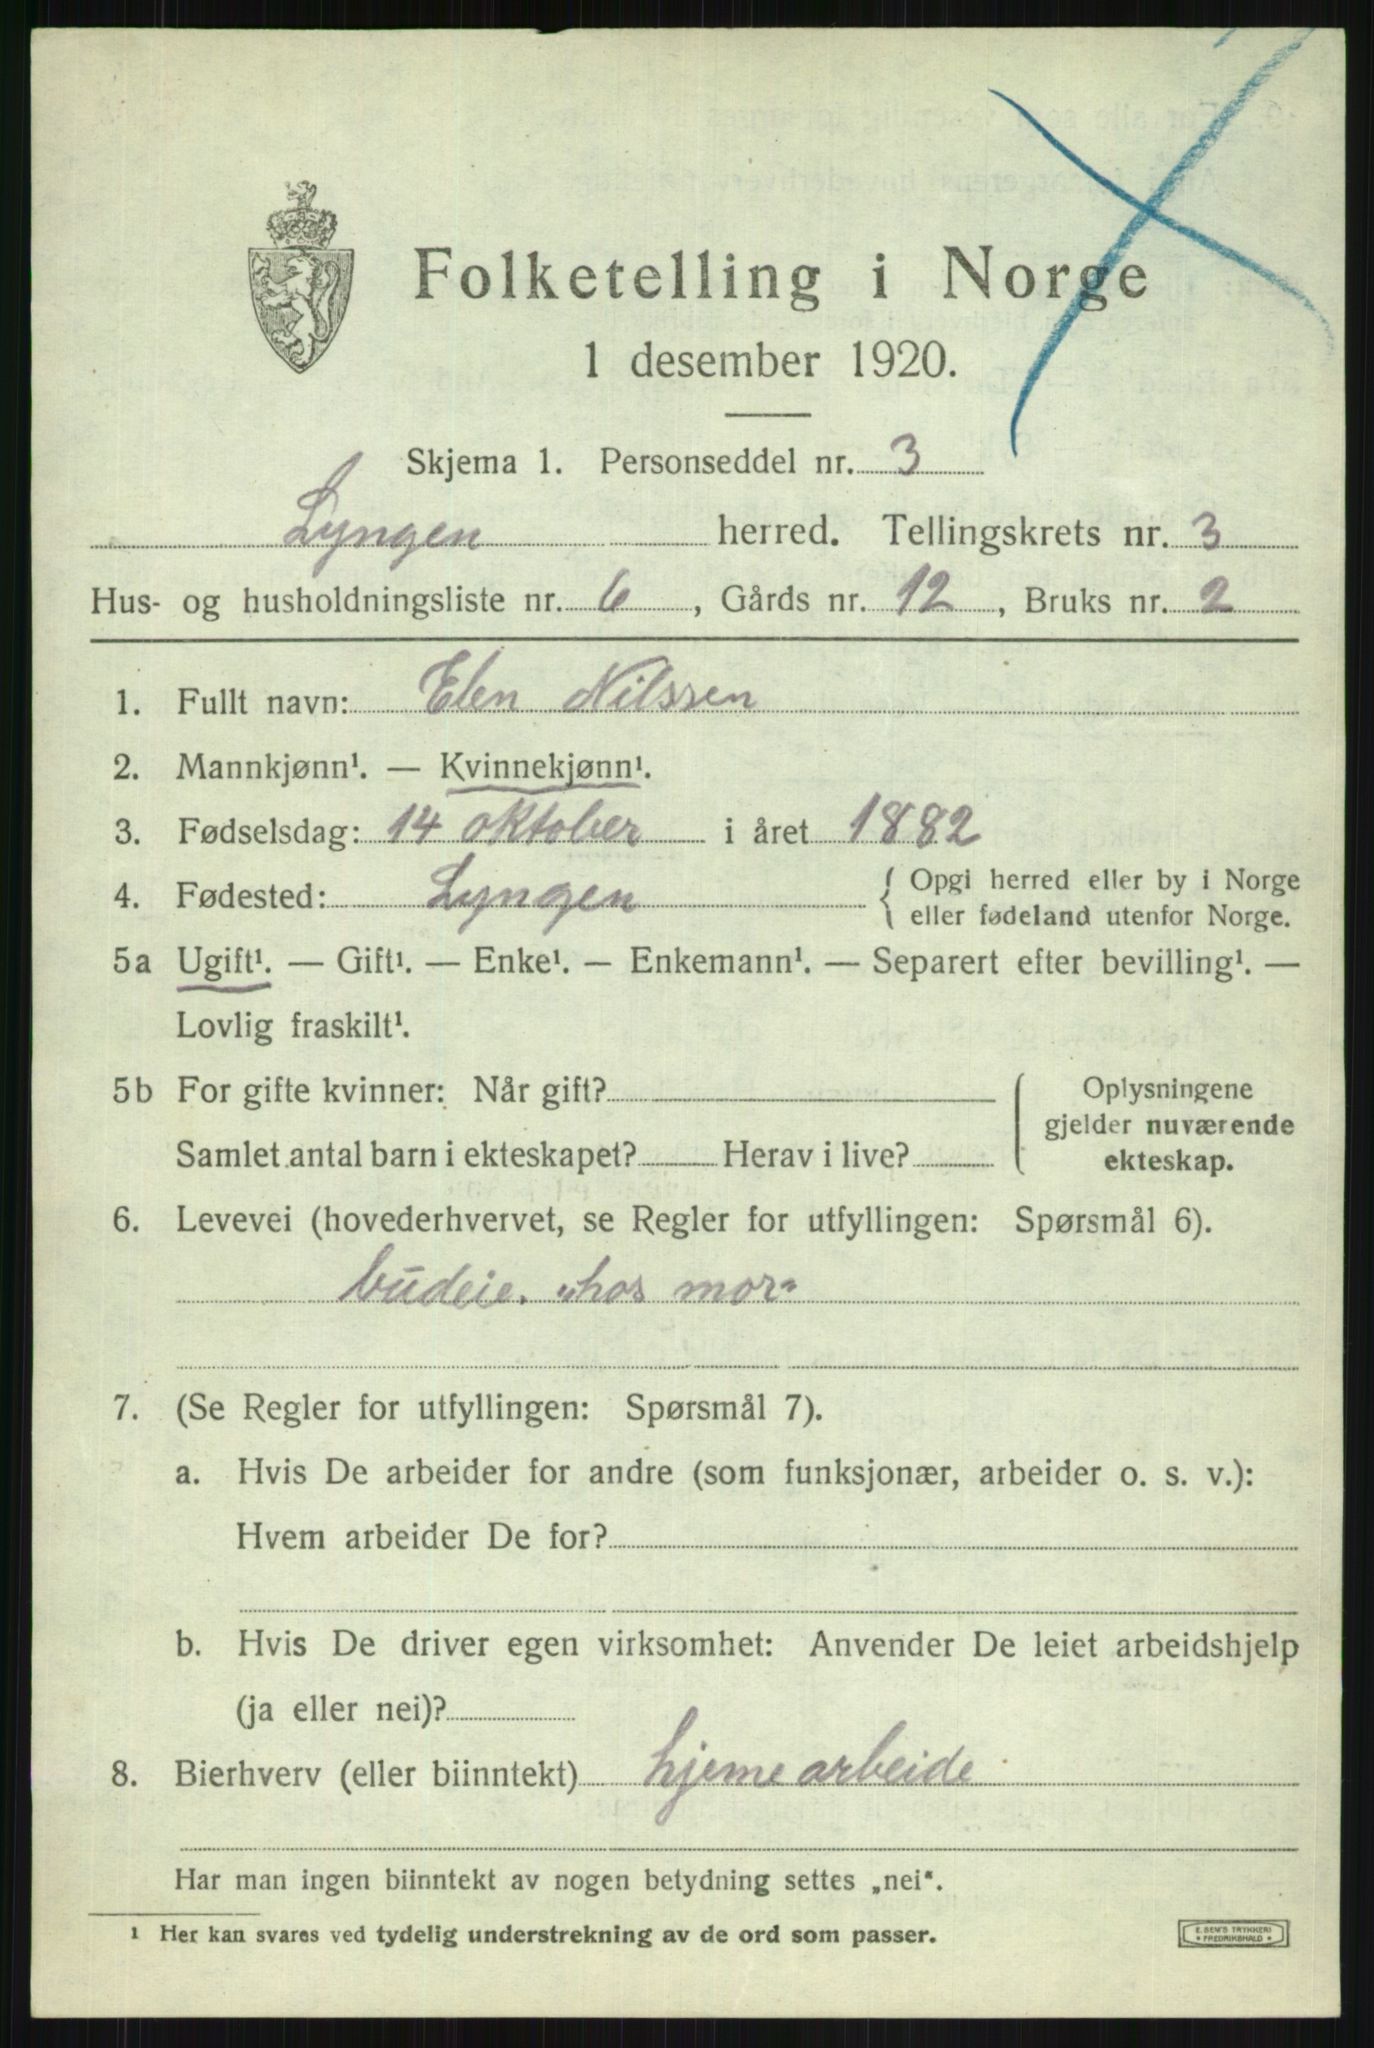 Folketelling i Norge
1 desember 1920.
Skjema 1. Personseddel nr. 3
Lyngen herred. Tellingskrets nr. 3
Hus- og husholdningsliste nr. 6, Gårds nr. 12, Bruks nr. 2
1. Fullt navn: Elen Nilssen
2. Mannkjønn¹. — Kvinnekjønn¹.
3. Fødselsdag: 14 oktober i året 1882
4. Fødested: Lyngen { Opgi herred eller by i Norge
eller fødeland utenfor Norge.
5a Ugift¹. — Gift¹. — Enke¹. — Enkemann¹. — Separert efter bevilling¹. —
Lovlig fraskilt¹.
5b For gifte kvinner: Når gift? Oplysningene
gjelder nuværende
Samlet antal barn i ekteskapet? Herav i live? ekteskap.
6. Levevei (hovederhvervet, se Regler for utfyllingen: Spørsmål 6).
budeie. „hos mor"
7. (Se Regler for utfyllingen: Spørsmål 7).
a. Hvis De arbeider for andre (som funksjonær, arbeider o. s. v.):
Hvem arbeider De for?
b. Hvis De driver egen virksomhet: Anvender De leiet arbeidshjelp
(ja eller nei)?
8. Bierhverv (eller biinntekt) hjemearbeide
Har man ingen biinntekt av nogen betydning settes „nei".
¹ Her kan svares ved tydelig understrekning av de ord som passer.
E. SEM'S TRYKKERI
FREDRIKSHALD